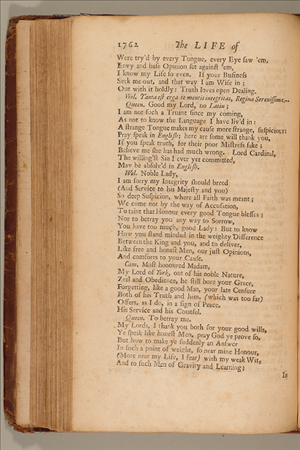 1762 The LIFE of
Were try'd by every Tongue, every Eye saw 'em,
Envy and base Opinion set against 'em,
I know my Life so even. If your Business
Seek me out, and that way I am Wife in;
Out with it boldly: Truth loves open Dealing.
Wol. Tanta est erga te mentis integritas, Regina Serenissima.—
Queen. Good my Lord, no Latin;
I am not such a Truant since my coming,
As not to know the Language I have liv'd in:
A strange Tongue makes my cause more strange, suspicious:
Pray speak in English; here are some will thank you,
If you speak truth, for their poor Mistress sake;
Believe me she has had much wrong. Lord Cardinal,
The willing'st Sin I ever yet committed,
May be absolv'd in English.
Wol. Noble Lady,
I am sorry my Integrity should breed
(And Service to his Majesty and you)
So deep Suspicion, where all Faith was meant;
We come not by the way of Accusation,
To taint that Honour every good Tongue blesses;
Nor to betray you any way to Sorrow,
You have too much, good Lady: But to know
How you stand minded in the weighty Difference
Between the King and you, and to deliver,
Like free and honest Men, our just Opinions,
And comforts to your Cause.
Cam. Most honoured Madam,
My Lord of York, out of his noble Nature,
Zeal and Obedience, he still bore your Grace,
Forgetting, like a good Man, your late Censure
Both of his Truth and him, (which was too far)
Offers, as I do, in a sign of Peace,
His Service and his Counsel.
Queen. To betray me.
My Lords, I thank you both for your good wills,
Ye speak like honest Men, pray God ye prove so,
But how to make ye suddenly an Answer
In such a point of weight, so near mine Honour,
(More near my Life, I fear) with my weak Wit,
And to such Men of Gravity and Learning;
In